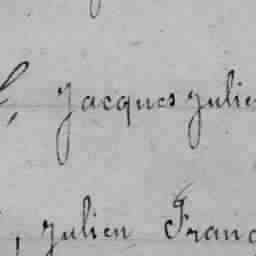 Jacques Julie
, Julien Franç